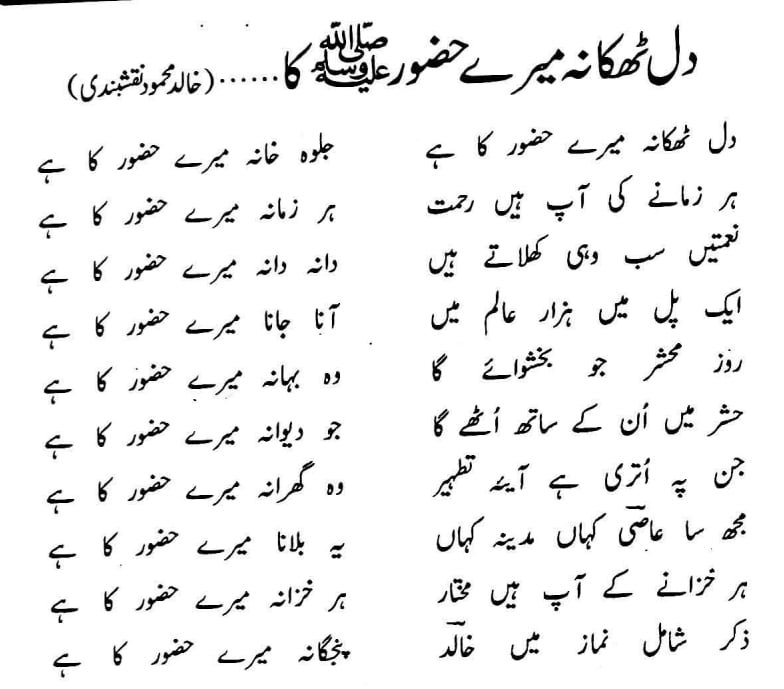 دل ٹھکانہ میرے حضور ﷺ کا ...... (خالد محمود نقشبندی)
دل ٹھکانہ میرے حضور کا ہے جلوہ خانہ میرے حضور کا ہے
ہر زمانے کی آپ ہیں رحمت ہر زمانہ میرے حضور کا ہے
نعمتیں سب وہی کھلاتے ہیں دانہ دانہ میرے حضور کا ہے
ایک پل میں ہزار عالم میں آنا جانا میرے حضور کا ہے
روز محشر جو بخشوائے گا وہ بہانہ میرے حضور کا ہے
حشر میں اُن کے ساتھ اُٹھے گا جو دیوانہ میرے حضور کا ہے
جن پہ اُتری ہے آیۂ تطہیر وہ گھرانہ میرے حضور کا ہے
مجھ سا عاصی کہاں مدینہ کہاں یہ بلانا میرے حضور کا ہے
ہر خزانے کے آپ ہیں مختار ہر خزانہ میرے حضور کا ہے
ذکر شامل نماز میں خالد پنجگانہ میرے حضور کا ہے